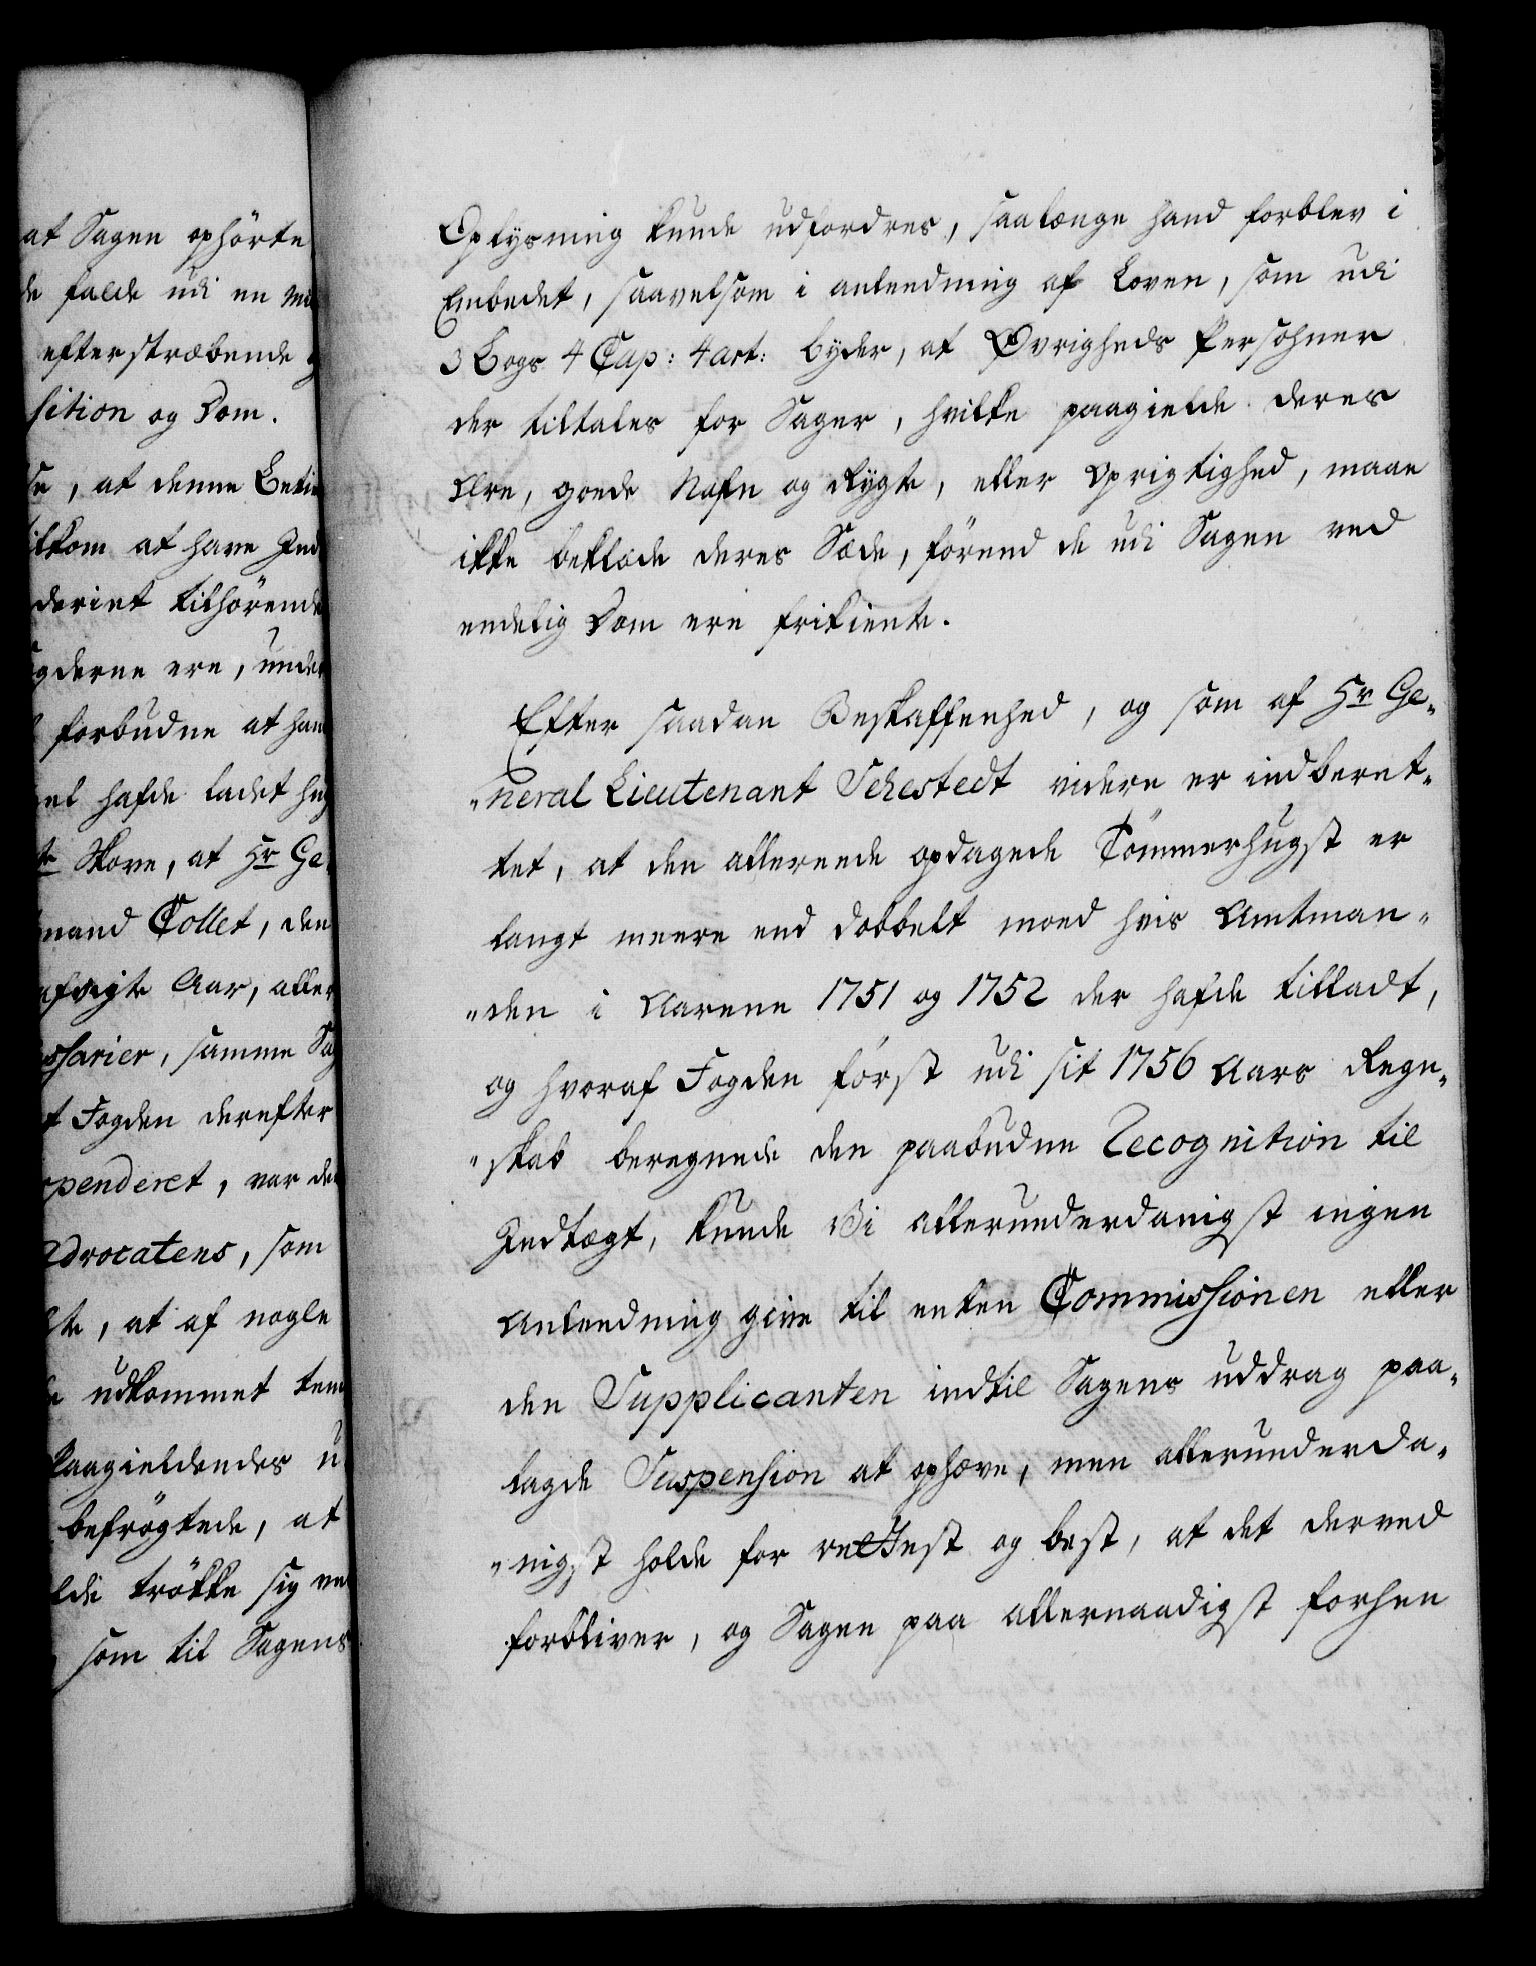 at Sagen ophörte
de falde udi en
efterstræbende
sition og Dom.
se, at denne
ilkom at have
deriet tilhörende
gderne ere, under
forbudne at
hafde ladet
Skove, at Hr Ge
mand Collet, den
Aar,
ssarier, samme
t Fogden derefter
spenderet, var
Advocatens, som
te, at af nogle
udkommet
Paagieldendes
befrögtede, at
lde trökke sig
som til Sagens
Oplysning kunde udfordres, saalænge hand forblev i
Embedet, saavelsom i anledning af Loven, som udi
3 Bogs 4 Cap: 4 art: byder, at Øvrigheds Persohner
der tiltales for Sager, hvilke paagielde deres
Ære, goede Nafn og Rygte, eller Oprigtighed, maae
ikke beklæde deres Sæde, förend de udi Sagen ved
endelig Dom ere frikiente.
Efter saadan Beskaffenhed, og som af Hr Ge„
„neral Lieutenant Sehestedt videre er indberet„
tet, at den allereede opdagede Tömmerhugst er
langt meere end dobbelt moed hvis Amtman„
„den i Aarene 1751 og 1752 der hafde tilladt,
og hvoraf Fogden först udi sit 1756 Aars Regn„
„skab beregnede den paabudne Recognition til
Indtægt, kunde Vi allerunderdanigst ingen
Anledning give til enten Commissionen eller
den Supplicanten indtil Sagens uddrag paa„
lagde Suspension at ophæve, men allerunderda„
„nigst holde for rettest og best, at det derved
forbliver, og Sagen paa allernaadigst forhen